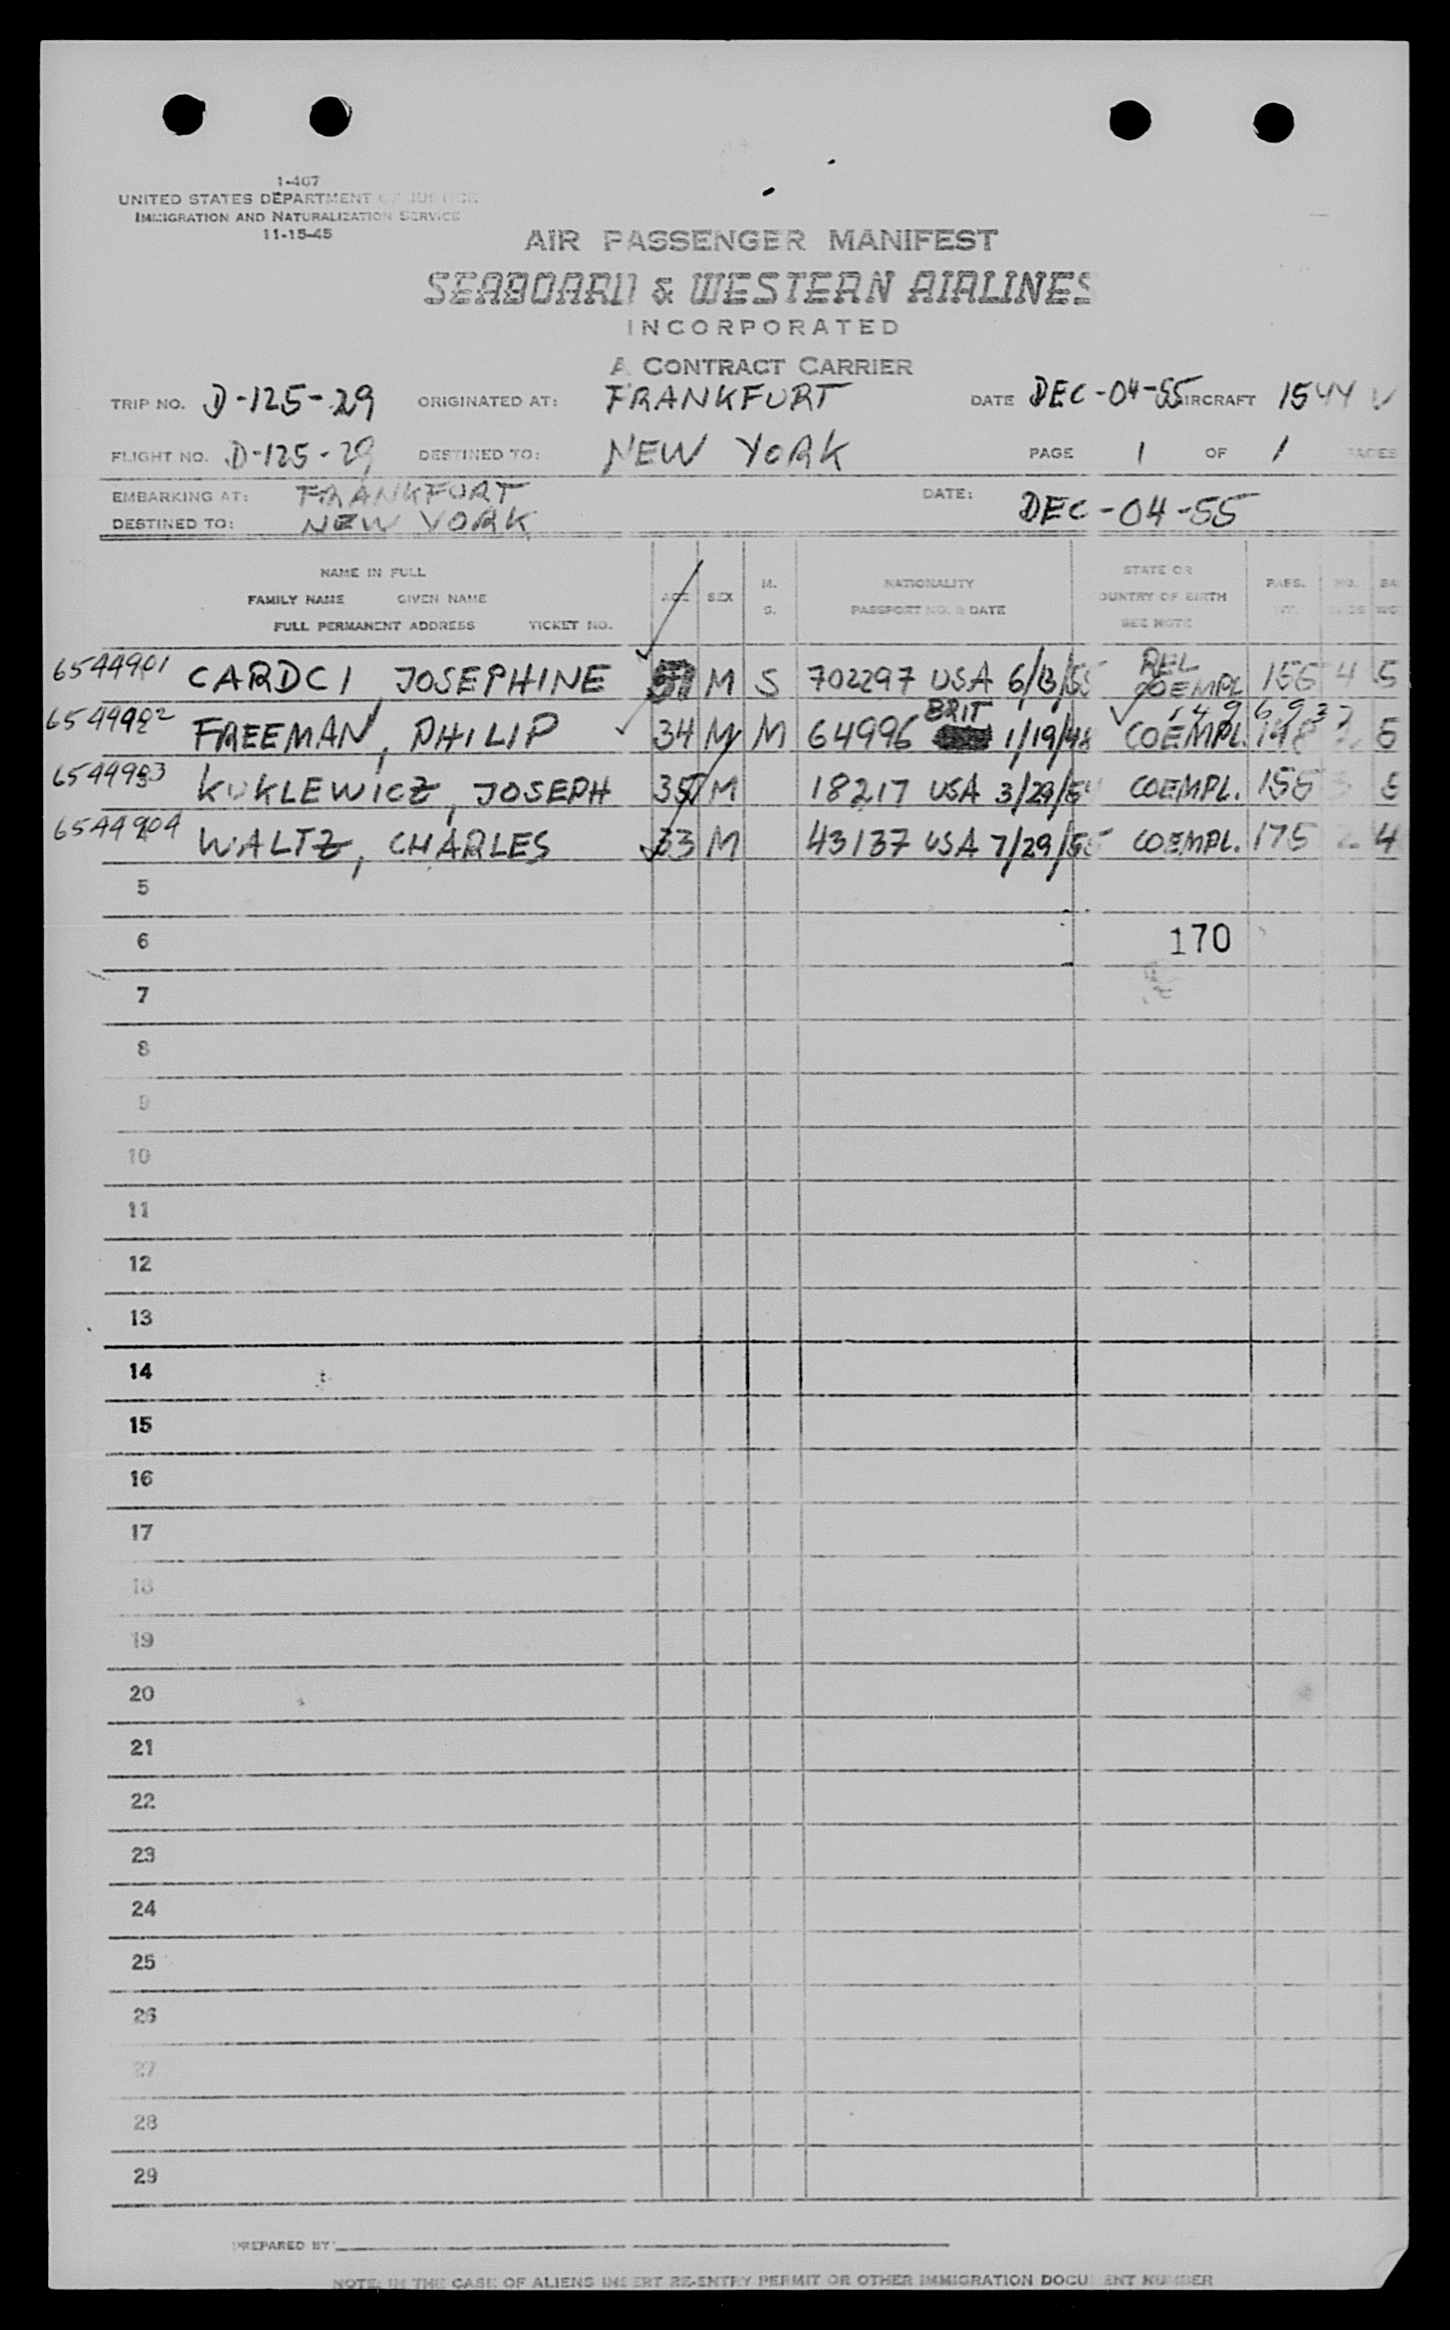 1-467
UNITED STATES DEPARTMENT OF JUSTICE
IMMIGRATION AND NATURALIZATION SERVICE
11-15-45
AIR PASSENGER MANIFEST
SEABOARD & WESTERN AIRLINES
INCORPORATED
A CONTRACT CARRIER
TRIP NO. D-125-29 ORIGINATED AT: FRANKFURT DATE DEC-04-55 AIRCRAFT 1544 V
FLIGHT NO. D-125-29 DESTINED TO: NEW YORK PAGE 1 OF 1 PAGES
EMBARKING AT: FRANKFURT DATE: DEC-04-55
DESTINED TO: NEW YORK
NAME IN FULL
FAMILY NAME GIVEN NAME
FULL PERMANENT ADDRESS TICKET NO.
AGE SEX M. S.
NATIONALITY
PASSPORT NO. & DATE
STATE OR
COUNTRY OF BIRTH
SEE NOTE
PASS. NO.
6544901 CARDCI, JOSEPHINE M S 702297 USA 6/13/55 REL COEMPL 155 4 5
1496933
6544902 FREEMAN, PHILIP 34 M M 64996 BRIT 1/19/48 COEMPL. 198 2 5
6544903 KUKLEWICZ, JOSEPH 35 M 18217 USA 3/29/54 COEMPL. 155 3
6544904 WALTZ, CHARLES 33 M 43137 USA 7/29/55 COEMPL. 175 2 4
5
6 170
7
8
9
10
11
12
13
14
15
16
17
18
19
20
21
22
23
24
25
26
27
28
29
PREPARED BY
NOTE: IN THE CASE OF ALIENS INSERT RE-ENTRY PERMIT OR OTHER IMMIGRATION DOCUMENT NUMBER